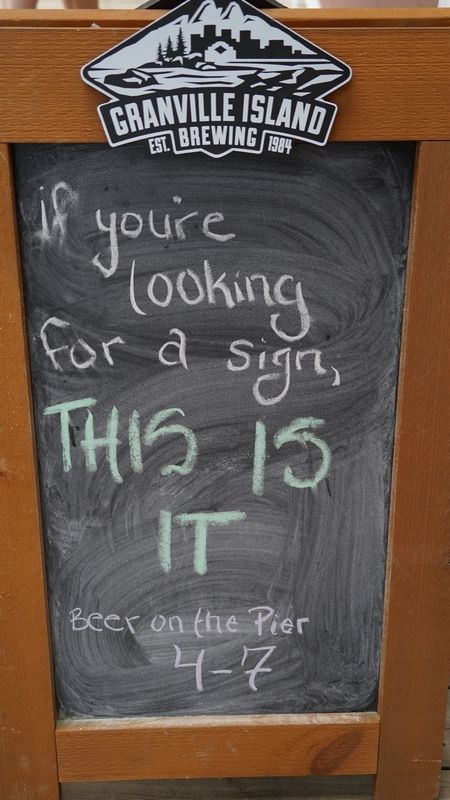 GRANVILLE ISLAND
EST. BREWING 1984
if you're
looking
for a sign,
THIS IS
IT
Beer on the Pier
4-7